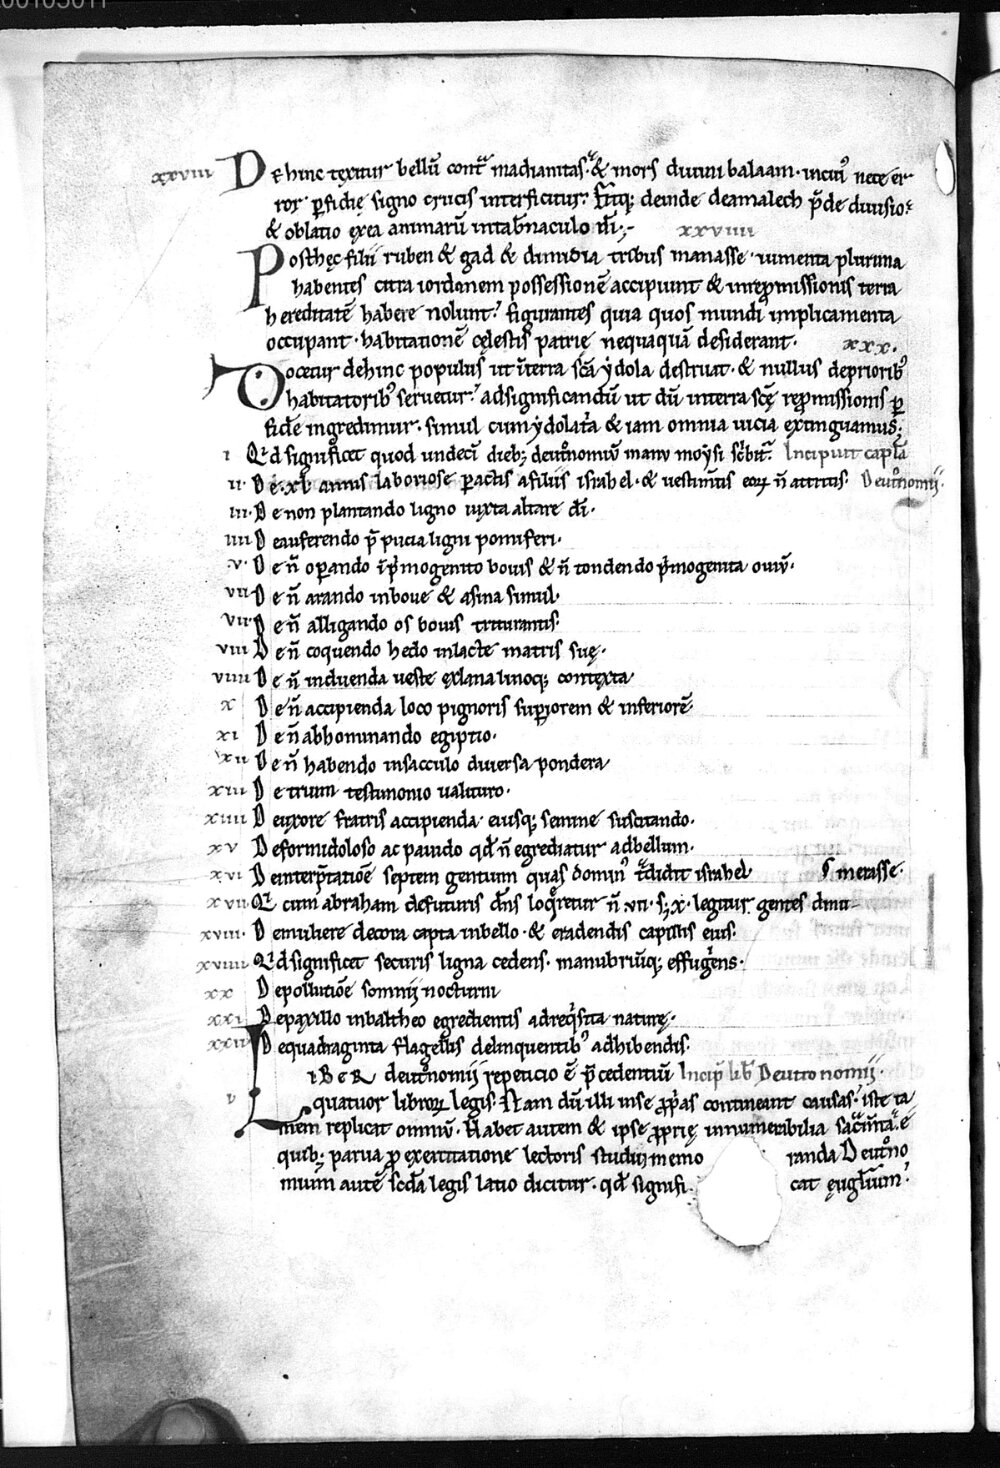 xxviii Dehinc texitur bellū contͣ madianitas· & mors diuini balaam· incuiꝰ nece er
ror ꝑfidię signo crucis interficitur. Fitq; deinde deamalech p̄de diuisio·
& oblatio exea animarū intab̄naculo dī;- xxviiii
Posthęc filii ruben & gad & dimidia tribus manasse· iumenta plurima
habentes citra iordanem possessionē accipiunt & inrep̄missionis terra
hereditatē habere nolunt. figurantes quia quos mundi implicamenta
occupant· habitationē celestis patrię nequaquā desiderant· xxx.
Docetur dehinc populus ut īterra sc̄a ydola destruat· & nullus depriorib;
habitatorib; seruetur. adsignificandū ut dū interra scę rep̄missionis ꝑ
fidē ingredimur· simul cum ydolatͥa & iam omnia uicia extinguamus;
i Qd̄ significet quod undeci dieb; deut̄nomiū manu moysi sc̄bitͬ. Incipiunt capľa
ii· De·xl· annis laboriose ꝑactis afiliis israhel· & uestim̄tis eoꝝ n̄ attritis· Deut̄nomii·
iii· De non plantando ligno iuxta altare dī·
iiii Deauferendo p̄pucia ligni pomiferi·
·v· De n̄ oꝑando īpͥmogenito bouis & n̄ tondendo pͥmogenita ouiū·
vii De n̄ arando inboue & asina simul·
vii De n̄ alligando os bouis triturantis·
viii De n̄ coquendo hedo inlacte matris suę·
viiii De n̄ induenda ueste exlana linoq; contexta
x De n̄ accipienda loco pignoris suꝑiorem & inferiorē·
xi De n̄ abhominando egiptio·
xii De n̄ habendo insacculo diuersa pondera
xiii De trium testimonio ualituro·
xiiii Deuxore fratris accipienda· eiusq; semine suscitando·
xv Deformidoloso ac pauido qd̄ n̄ egrediatur adbellum·
xvi Deinterp̄tatiōe septem gentium quas dominꝰ tͣdidit israhel
metasse·
xvii Qͬ cum abraham defuturis dn̄s loq̄retur n̄ ·vii· s; ·x· legitur gentes dinu
xviii· Demuliere decora capta inbello· & eradendis capillis eius·
xviiii Qd̄ significet securis ligna cedens· manubriūq; effugiens·
xx Depollutiōe somnii nocturni
xxi Depaxillo inbaltheo egredientis adreq̄sita naturę·
xxii Dequadraginta flagellis delinquentibꝰ adhibendis·
LIBER deut̄nomii repeticio ē p̄cedentiū Incip̄ lib̄ Deutronomii·
quatuor libroꝝ legis· Nam dū illi inse ꝓpͥas contineant causas. iste ta
men replicat omniū· Habet autem & ipse ꝓprię innumerabilia sacͣm̄ta. e
quib; parua ꝓ exercitatione lectoris studii memoranda Deut̄no
mium autē scd̄a legis latio dicitur· qd̄ significat ęugľium·